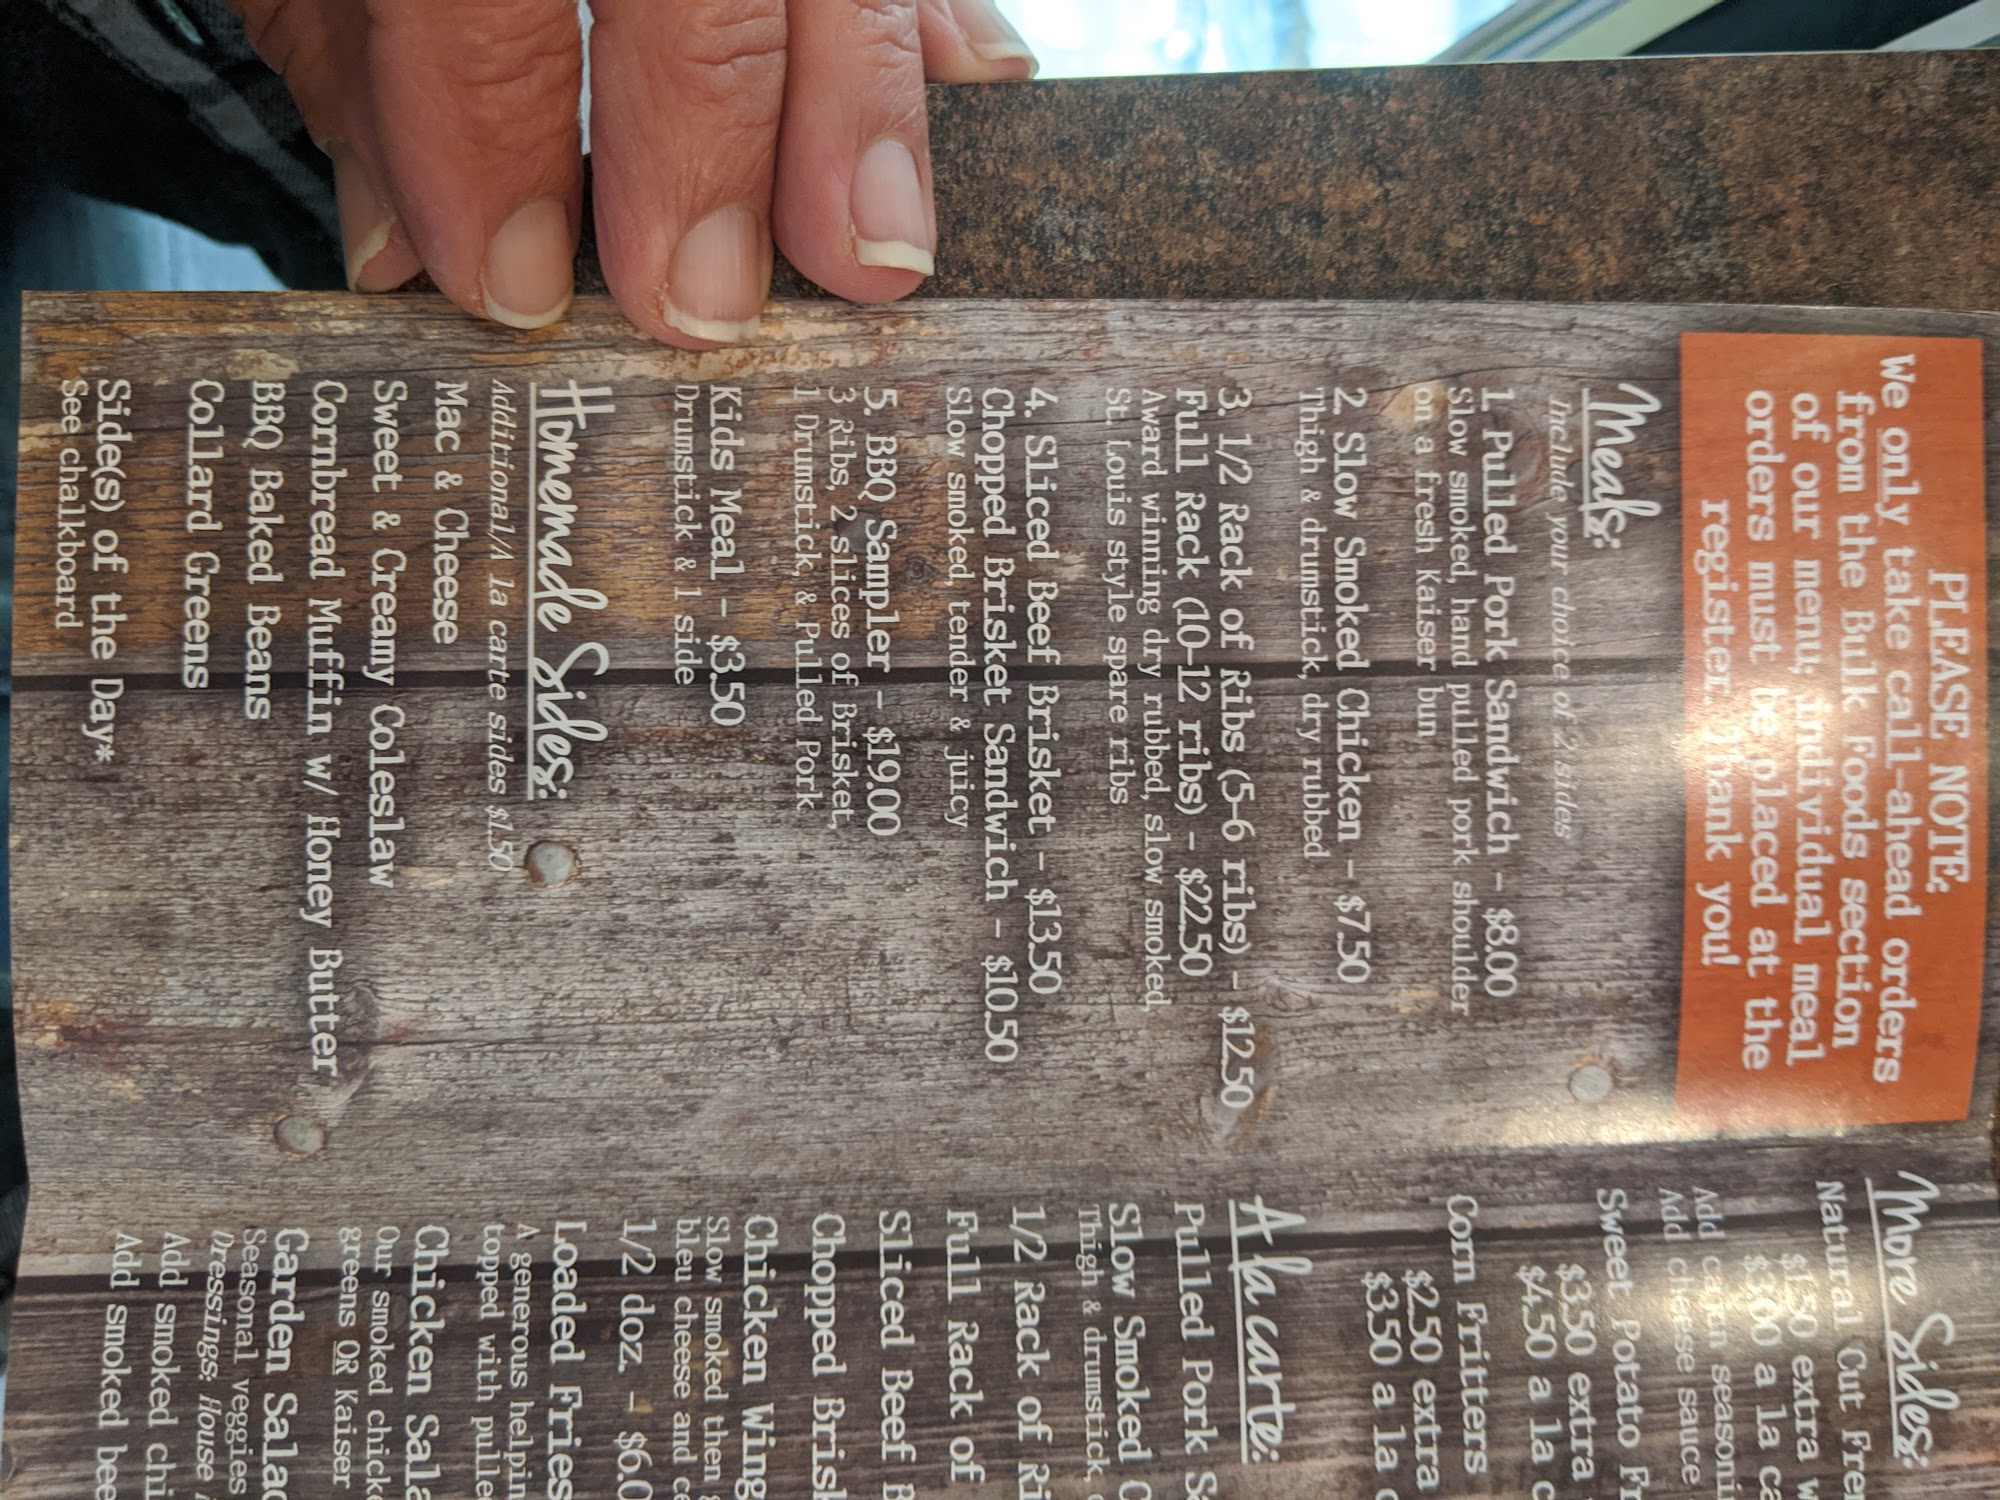 PLEASE NOTE,
We only take call-ahead orders
from the Bulk Foods section
of our menu; individual meal
orders must be placed at the
register. Thank you!
Meals:
Include your choice of 2 sides
1. Pulled Pork Sandwich - $8.00
Slow smoked, hand pulled pork shoulder
on a fresh Kaiser bun
2. Slow Smoked Chicken - $7.50
Thigh & drumstick, dry rubbed
3. 1/2 Rack of Ribs (5-6 ribs) - $12.50
Full Rack (10-12 ribs) - $22.50
Award winning dry rubbed, slow smoked,
St. Louis style spare ribs
4. Sliced Beef Brisket - $13.50
Chopped Brisket Sandwich - $10.50
Slow smoked, tender & juicy
5. BBQ Sampler - $19.00
3 Ribs, 2 slices of Brisket,
1 Drumstick, & Pulled Pork
Kids Meal - $3.50
Drumstick & 1 side
Homemade Sides:
Additional/A la carte sides $1.50
Mac & Cheese
Sweet & Creamy Coleslaw
Cornbread Muffin w/ Honey Butter
BBQ Baked Beans
Collard Greens
Side(s) of the Day*
See chalkboard
More Sides:
Natural Cut
$1.50 extra
$3.00 a la
Add cajun
Add cheese sauce
Sweet Potato
$3.50 extra
$4.50 a la
Corn Fritters
$2.50 extra
$3.50 a la
A la carte:
Pulled Pork
Slow Smoked
Thigh & drumstick,
1/2 Rack of
Full Rack of
Sliced Beef
Chopped
Chicken
Slow smoked then
bleu cheese and
1/2 doz. -
Loaded Fries
A generous
topped with
Chicken
Our smoked
greens OR Kaiser
Garden
Seasonal veggies
Dressings: House
Add smoked
Add smoked